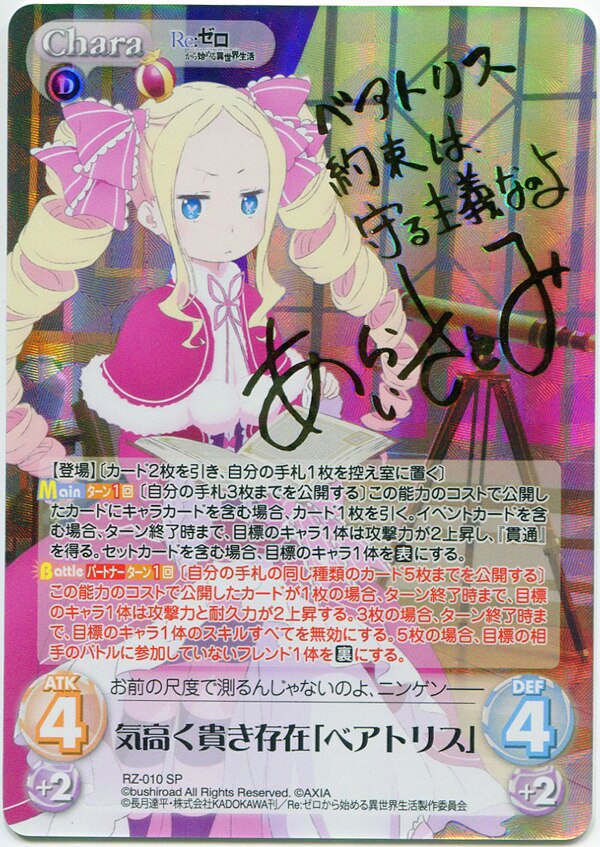 Chara
Re:ゼロ
から始める異世界生活
D
ベアトリス
約束は、
守る主義なのよ
あらいさとみ
【登場】〔カード2枚を引き、自分の手札1枚を控え室に置く〕
Main ターン1回 〔自分の手札3枚までを公開する〕この能力のコストで公開し
たカードにキャラカードを含む場合、カード1枚を引く。イベントカードを含
む場合、ターン終了時まで、目標のキャラ1体は攻撃力が2上昇し、『貫通』
を得る。セットカードを含む場合、目標のキャラ1体を裏にする。
Battle パートナー ターン1回 〔自分の手札の同じ種類のカード5枚までを公開する〕
この能力のコストで公開したカードが1枚の場合、ターン終了時まで、目標
のキャラ1体は攻撃力と耐久力が2上昇する。3枚の場合、ターン終了時ま
で、目標のキャラ1体のスキルすべてを無効にする。5枚の場合、目標の相
手のバトルに参加していないフレンド1体を裏にする。
お前の尺度で測るんじゃないのよ、ニンゲン――
ATK
4
+2
気高く貴き存在「ベアトリス」
DEF
4
+2
RZ-010 SP
©bushiroad All Rights Reserved. ©AXIA
©長月達平・株式会社KADOKAWA刊／Re:ゼロから始める異世界生活製作委員会